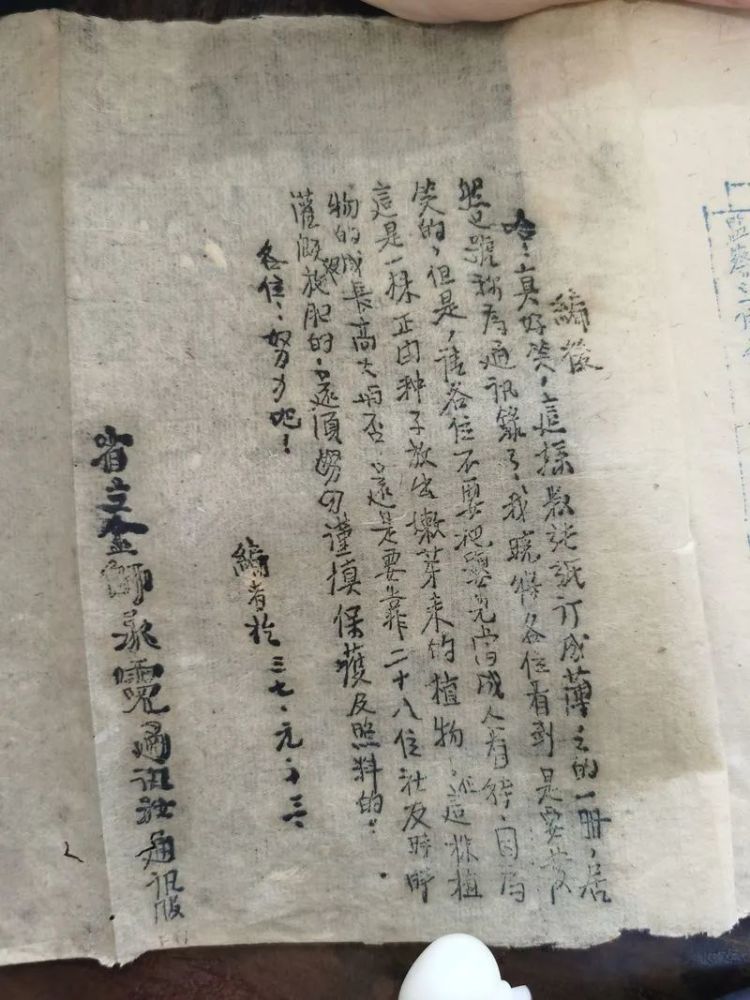 編後
哈：真好笑，這樣數張紙訂成薄之的一冊，居
然之號称為通訊錄了，我曉得各位看到是要發
笑的，但是，請各位不要把完當成人看待，因為
這是一株正由种子放出嫩芽来的植物；這株植
物的成長高大與否；這是要靠二十八位社友時時
灌溉施肥的；還須努力謹慎保護及照料的。
各位：努力吧！
編者於三七、元、十三、
省立金師永靈通訊社通訊版